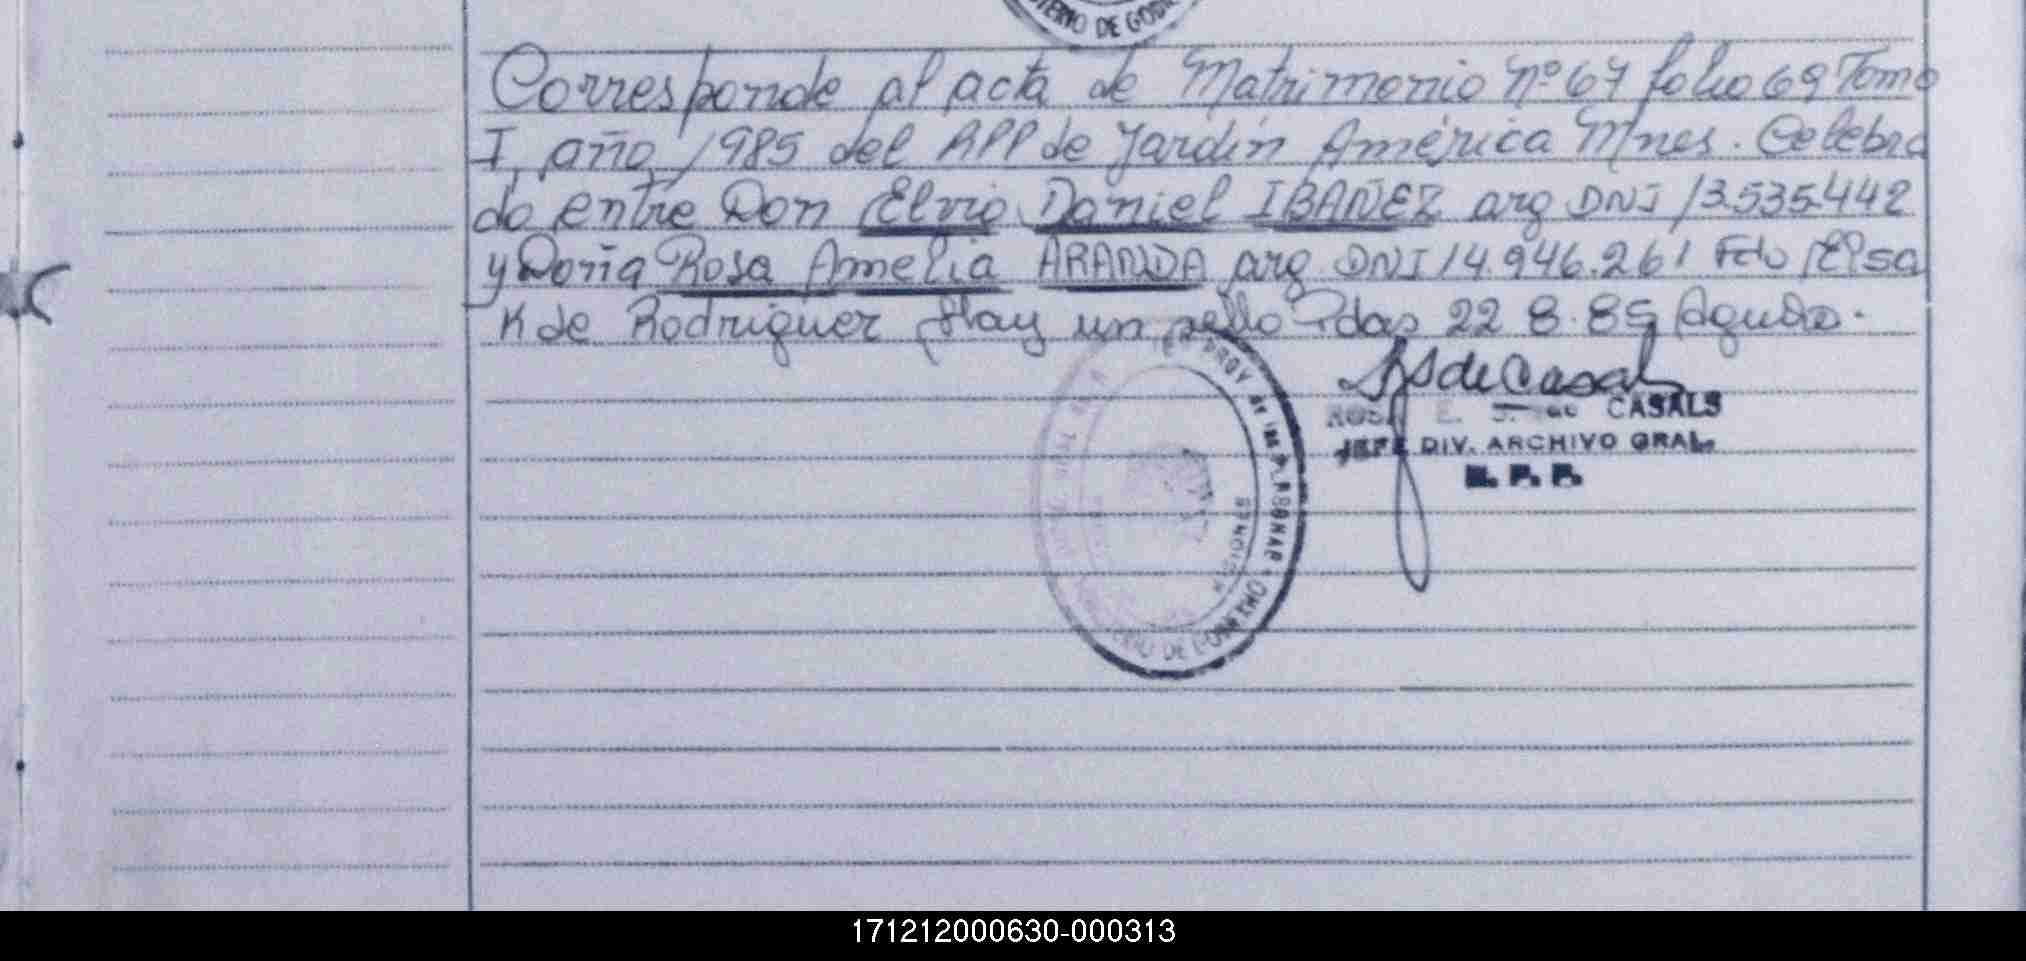 TERIO DE GOBI
Corresponde al acta de Matrimonio Nº 67 folio 69 Tomo
I, año, 1985 del RPP de Jardín América Mnes. Celebra
do entre Don Elvio Daniel IBAÑEZ arg DNI 13.535.442
y Doña Rosa Amelia ARANDA arg. DNI 14.946.261 Fdo Elsa
K de Rodriguez Hay un sello Pdas 22 8.85 Agueda.
PROV de las P.
MISIONES
DE GOBIERNO
CASALS
JEFE DIV. ARCHIVO GRAL.
R. P. P.
171212000630-000313